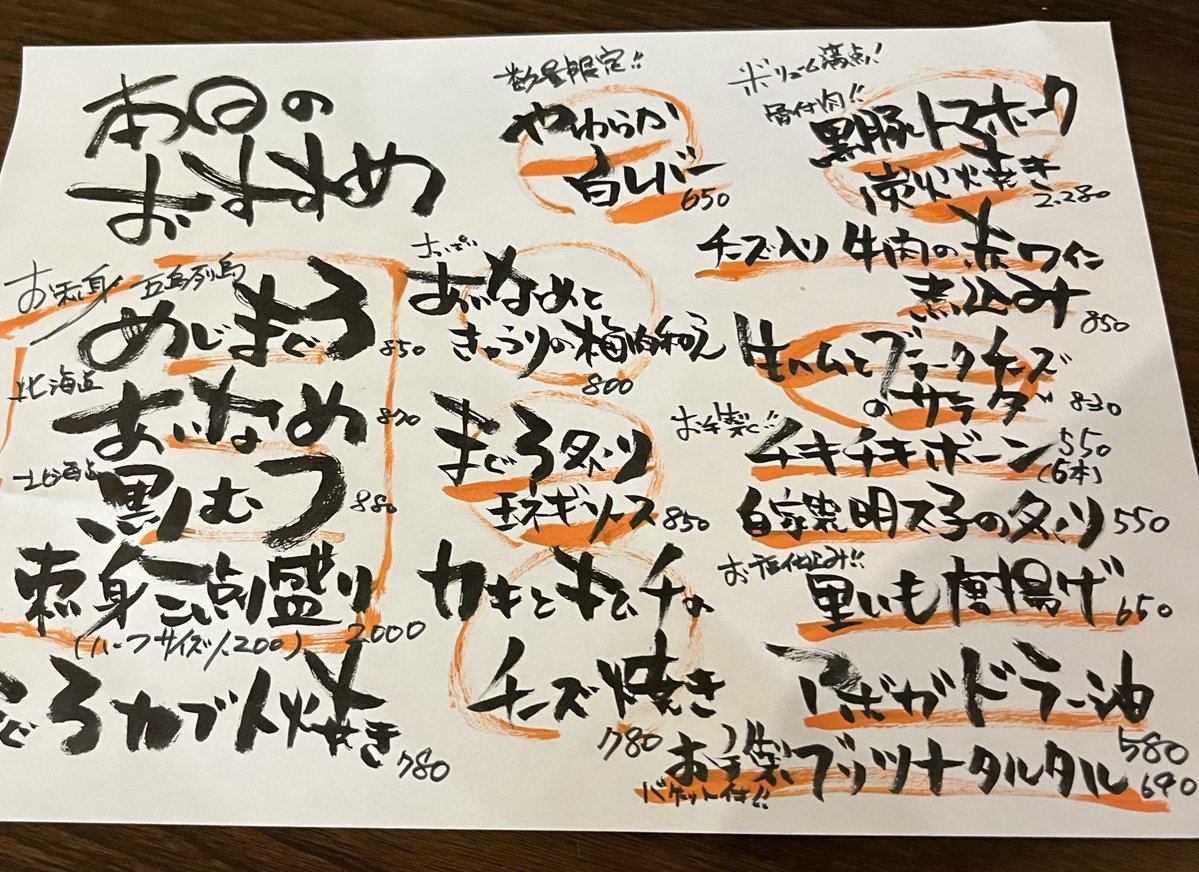 本日の
おすすめ
お刺身 五島列島
めじまぐろ 850
北海道
あいなめ 870
北海道
黒むつ 880
刺身三点盛り 2000
(ハーフサイズ1.200)
ぐろカブト焼き 780
数量限定!!
やわらか
白レバー 650
あいなめと
きゅうりの梅肉和え
800
まぐろタタキ
玉ネギソース 850
カキとキムチの
チーズ焼き
780
ボリューム満点!
骨付肉!!
黒豚トマホーク
炭火焼き
2.280
チーズ入り牛肉の赤ワイン
煮込み 850
生ハムとブラータチーズ
のサラダ 830
お手製で
チキチキボーン 550
(6本)
自家製明太子の 550
里いも唐揚げ 650
アボガドラー油
580
お手製ブツツナタルタル 640
バケット付!!